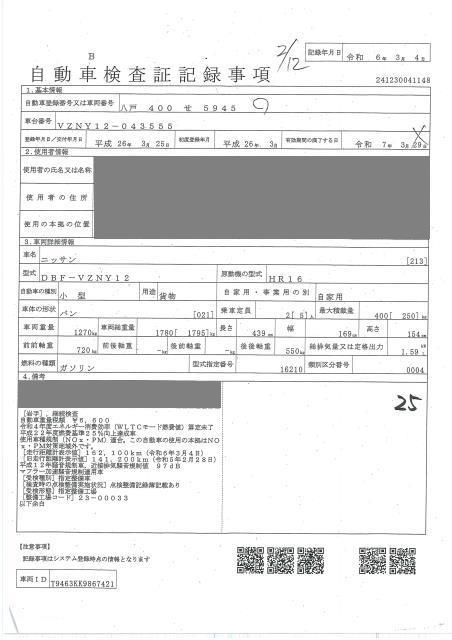 B
2/12
記録年月日 令和 6年 3月 4日
自動車検査証記録事項
241230041148
1.基本情報
自動車登録番号又は車両番号 八戸 400 せ 5945
車台番号 VZNY12-043555
登録年月日/交付年月日 平成 26年 3月 25日 初度登録年月 平成 26年 3月 有効期間の満了する日 令和 7年 3月 29日
2.使用者情報
使用者の氏名又は名称
使用者の住所
使用の本拠の位置
3.車両詳細情報
車名 ニッサン [213]
型式 DBF-VZNY12 原動機の型式 HR16
自動車の種別 小型 用途 貨物 自家用・事業用の別 自家用
車体の形状 バン [021] 乗車定員 2[ 5]人 最大積載量 400[ 250]kg
車両重量 1270kg 車両総重量 1780[ 1795]kg 長さ 439cm 幅 169cm 高さ 154cm
前前軸重 720kg 前後軸重 -kg 後前軸重 -kg 後後軸重 550kg 総排気量又は定格出力 1.59L
燃料の種類 ガソリン 型式指定番号 16210 類別区分番号 0004
4.備考
25
[岩手],継続検査
自動車重量税額 ¥6,600
令和4年度エネルギー消費効率(WLTCモード燃費値)算定未了
平成22年度燃費基準25%向上達成車
使用車種規制(NOx・PM)適合,この自動車の使用の本拠はNO
x・PM対策地域外です。
[走行距離計表示値]162,100km(令和6年3月4日)
[旧走行距離計表示値]141,200km(令和5年2月28日)
平成12年騒音規制車,近接排気騒音規制値 97dB
マフラー加速騒音規制適用車
[受検種別]指定整備車
[検査時の点検整備実施状況]点検整備記録簿記載あり
[受検形態]指定整備工場
[整備工場コード]23-00033
以下余白
【注意事項】
記録事項はシステム登録時点の情報となります
車両ID T9463KK9867421